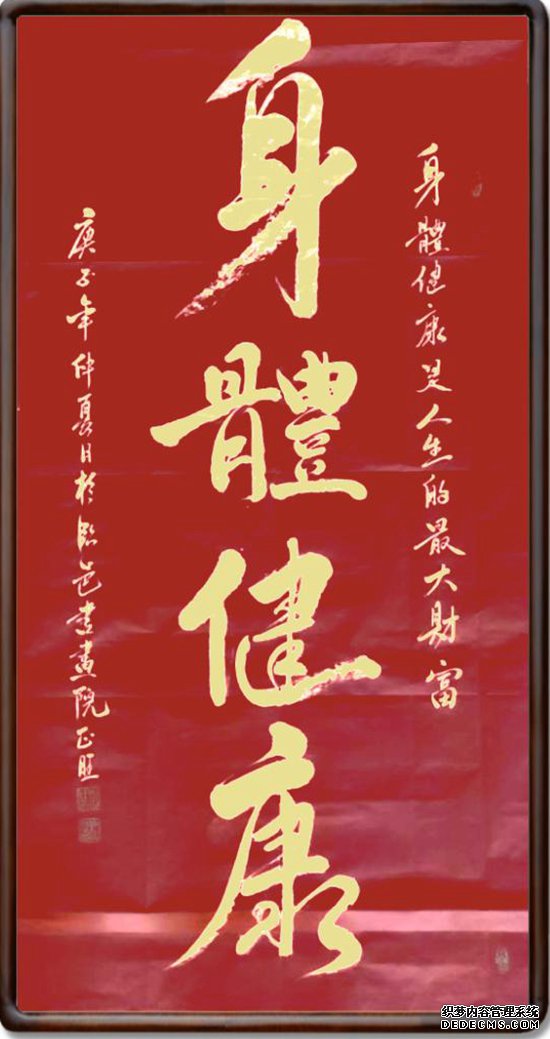 身體健康是人生的最大財富
身體健康
庚子年仲夏日於臨邑書畫院正旺
织梦内容管理系统
DEDECMS.COM